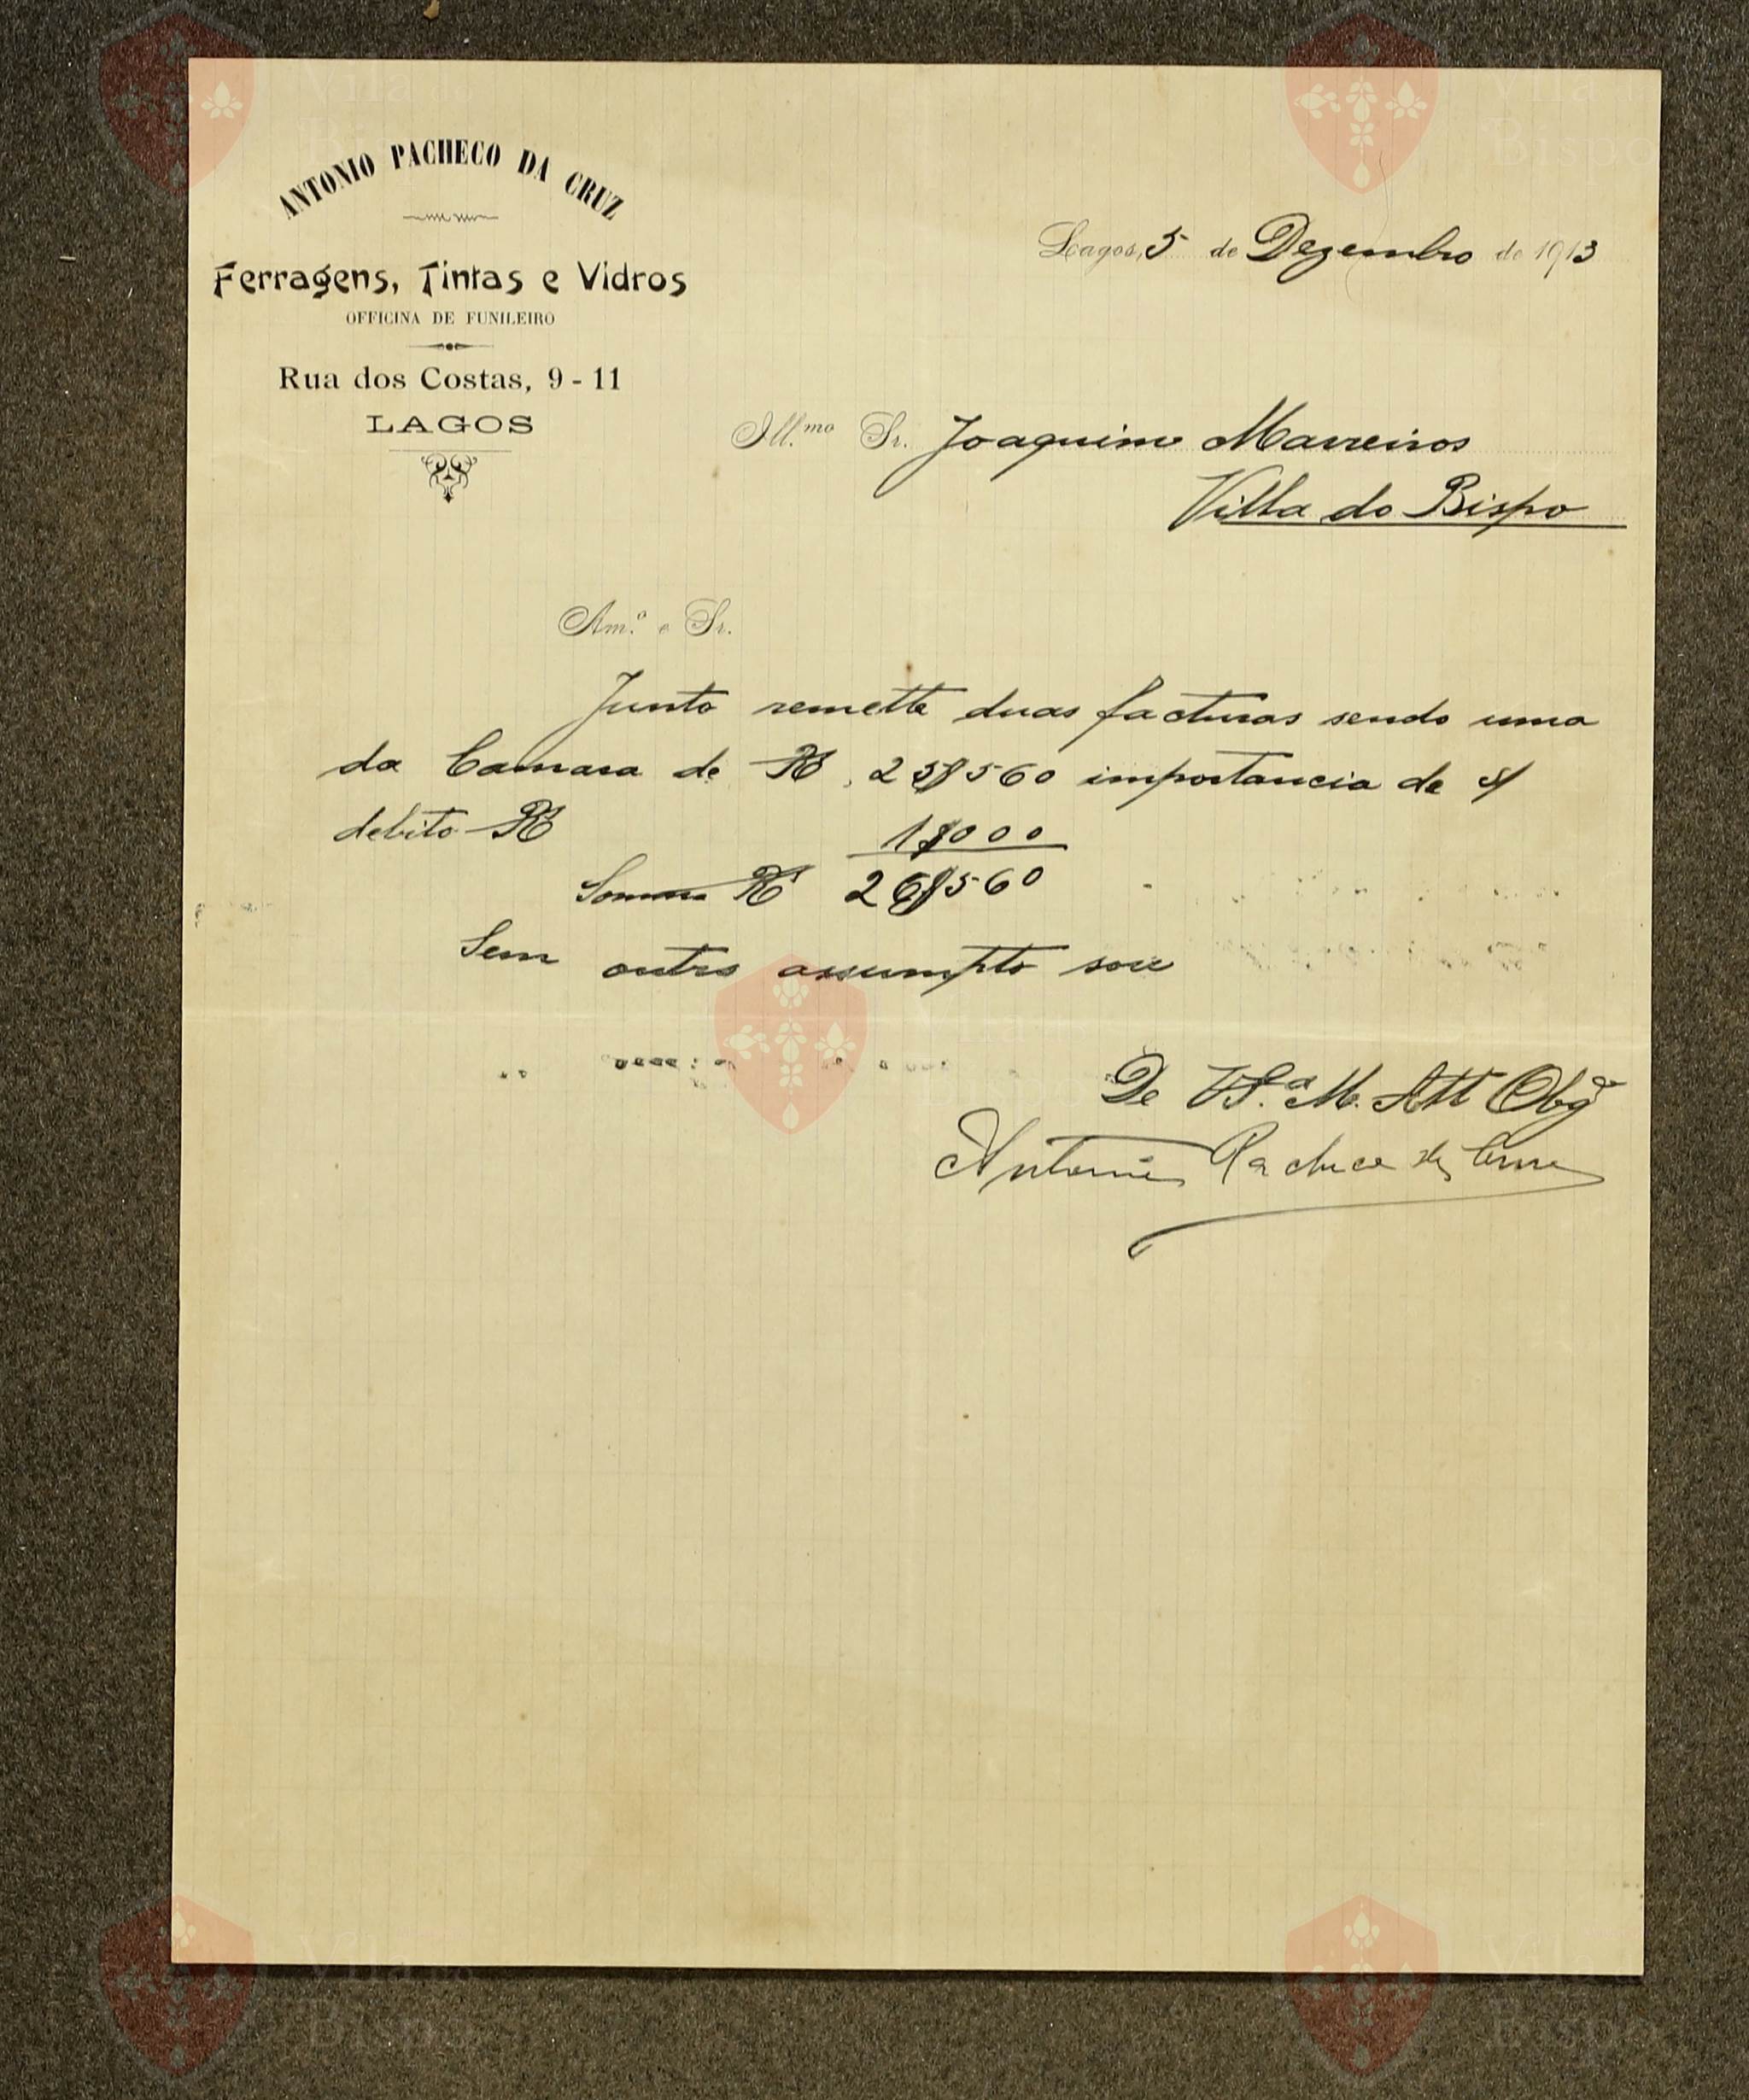 ANTONIO PACHECO DA CRUZ
Ferragens, Tintas e Vidros
OFFICINA DE FUNILEIRO
Rua dos Costas, 9-11
LAGOS
Lagos, 5 de Dezembro de 1913
Ill.mo Sr. Joaquim Marreiros
Villa do Bispo
Am.o e Sr.
Junto remette duas facturas sendo uma
da Camara de Rs. 25$560 importancia de s/
debito Rs 1$000
Somma Rs 26$560
Sem outro assumpto sou
De V. S.a M. Att Obg.o
Antonio Pacheco da Cruz
Vila do Bispo